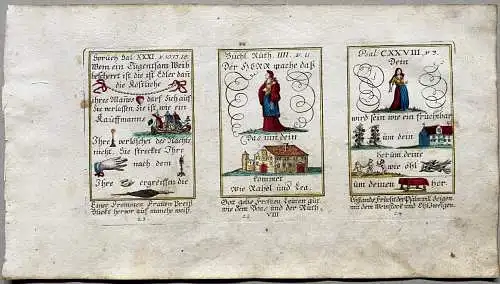 Sprüch Sal. XXXI. v. 10.13.19.
Wem ein Tugentsam Weib
bescheret ist die ist Edler dañ
die Köstliche
ihres Mañes darf sich auf
Sie verlassen Sie ist wie ein
Kauffmanns
Ihre verlöschet des Nachts
nicht. Sie strecket Ihre
nach dem
Ihre ergreiffen die
Einer Frommen Frauen Preiß
blickt hervor auf manche weiß
Buchl. Ruth. IIII. v. 11
Der HERR mache daß
Das in dein
kommet
wie Rahel und Lea.
Gott gebe
wie dem Boas und der Ruth.
VIII
Psal. CXXVIII. v. 3.
Dein
wird sein wie ein fruchtbar
üm dein
her üm deine
wie öhl
üm deinen her.
mit dem Weinstock und Ohlzweigen.